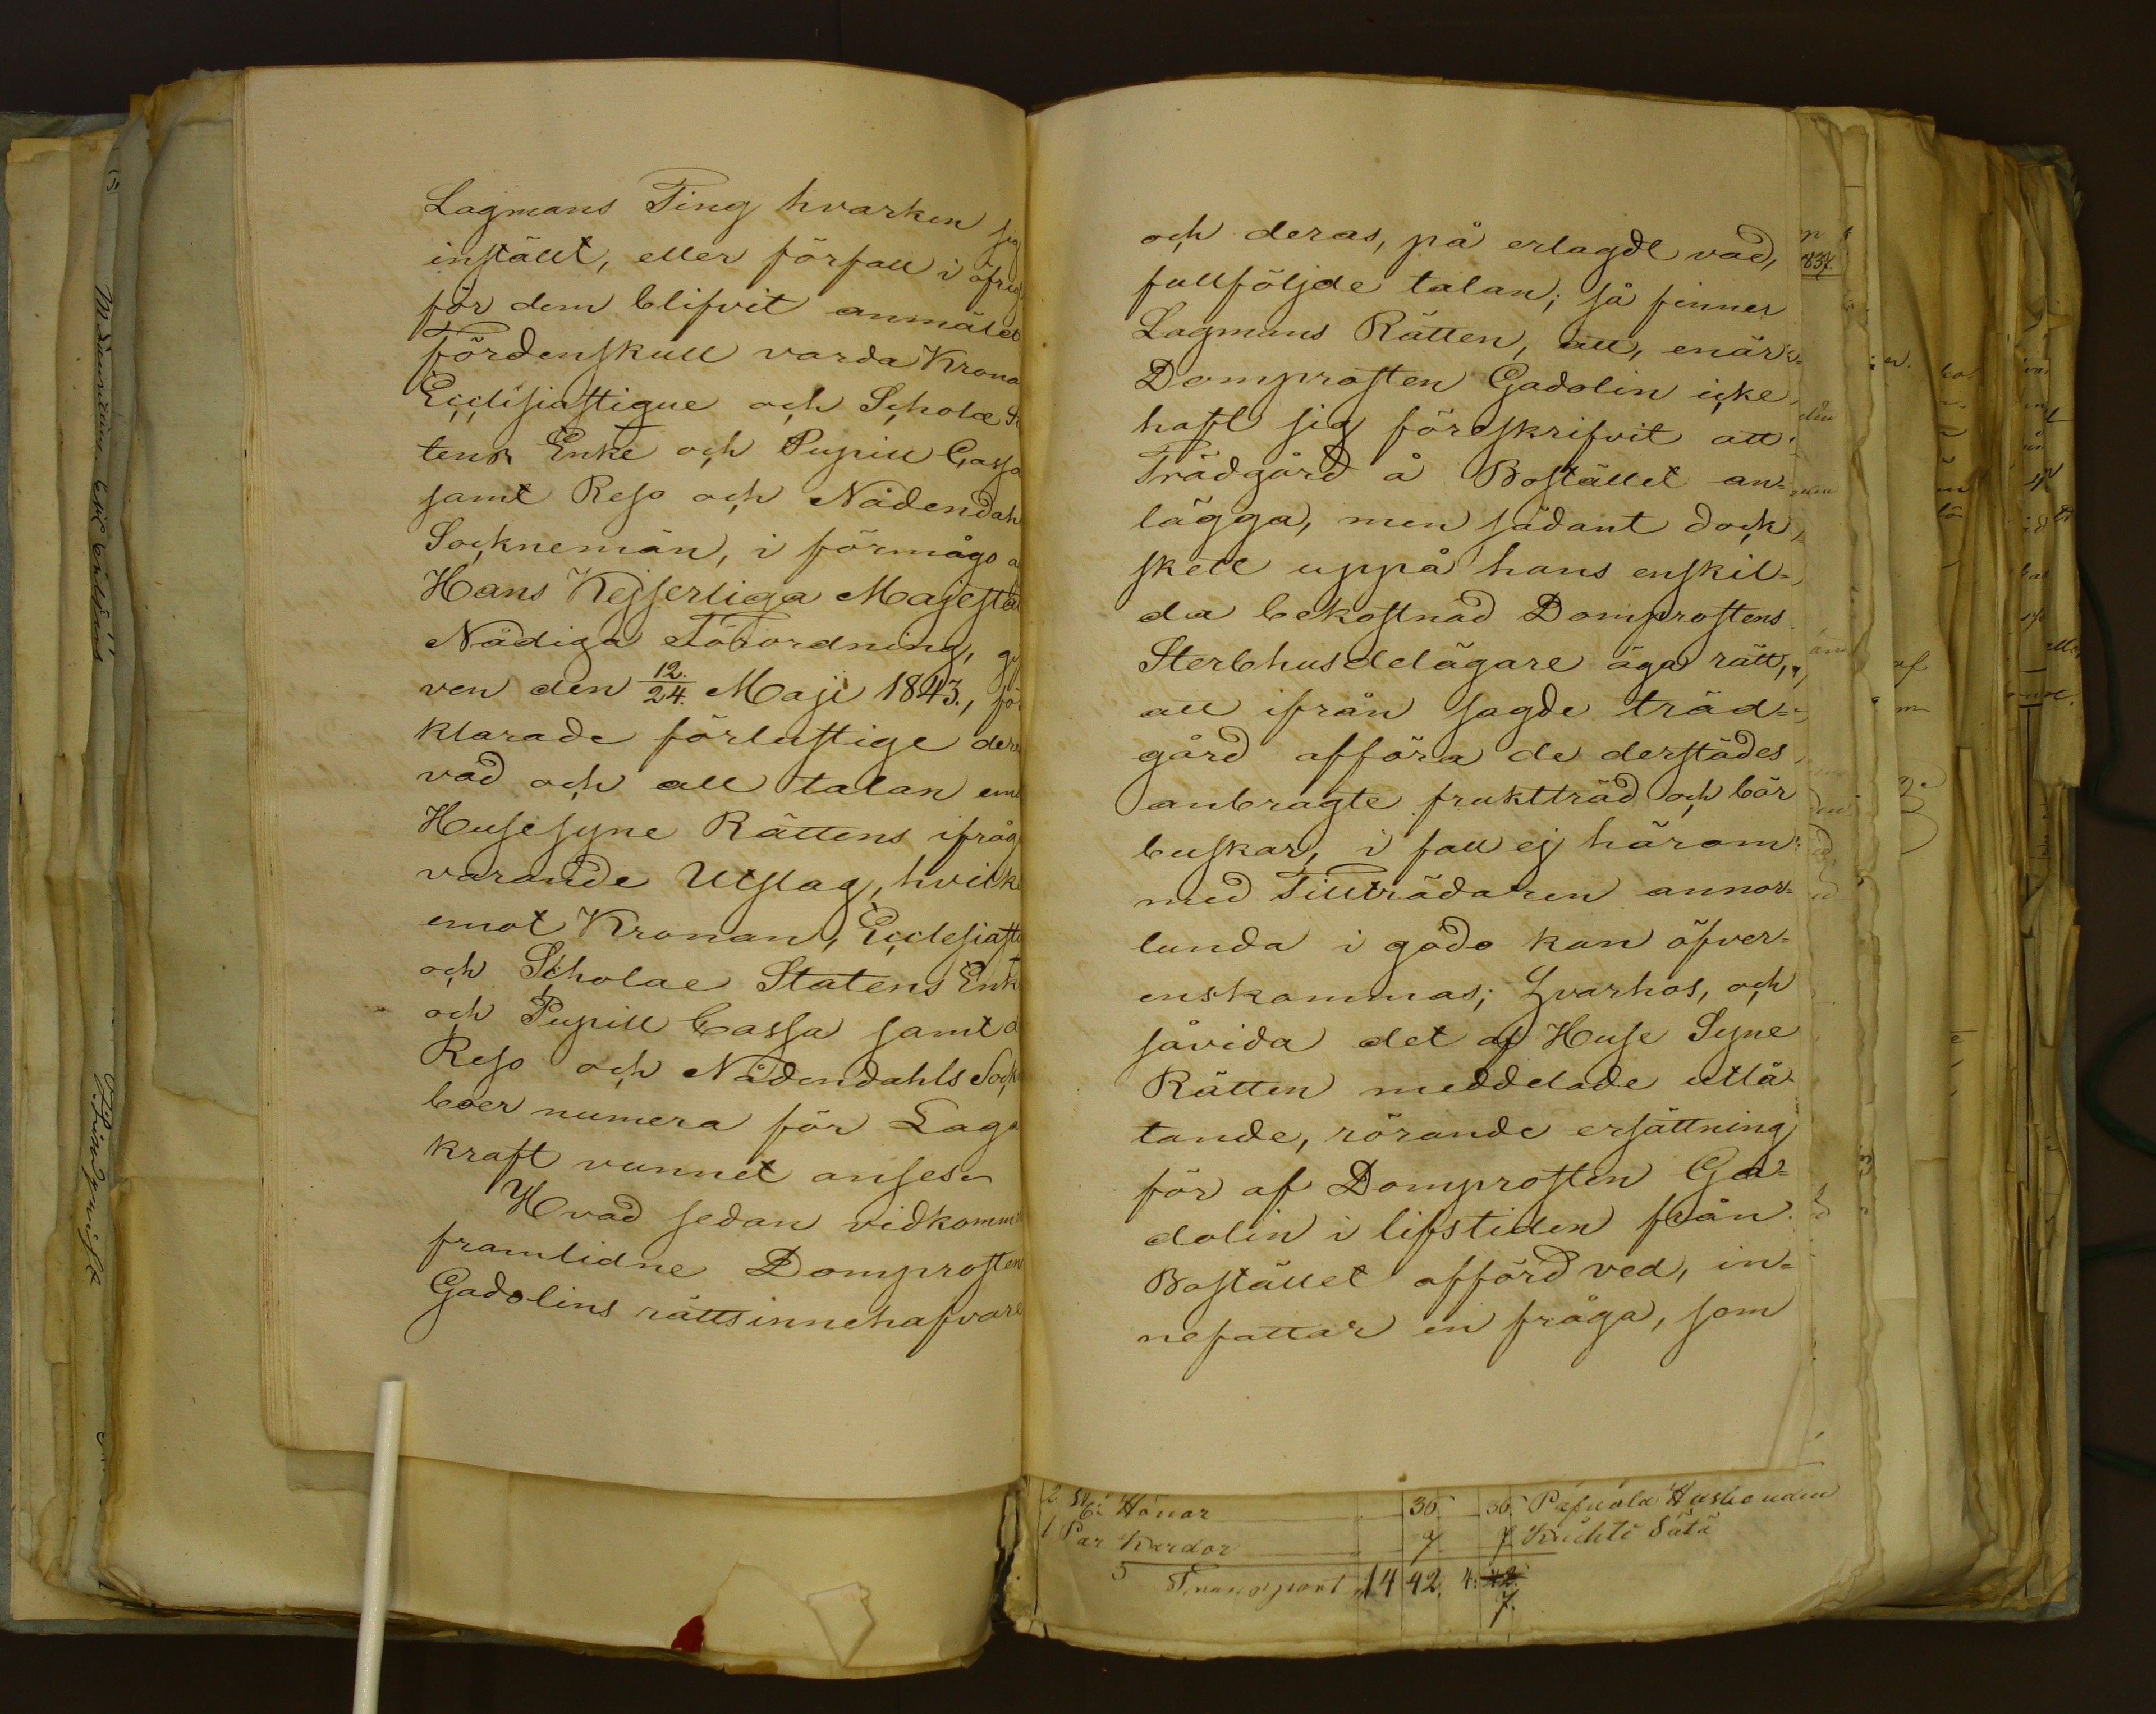 Lagmans Ting hvarken sig
instält, eller förfall i öfrig
för dem blifvit anmäldt
Fördenskull varda Krono
Ecclesiastique och Scholæ St
tens Enke och Pupill Cassa
samt Reso och Nådendahls
Socknemän, i förmågo a
Hans Kejserliga Majestäts
Nådiga Förordning, gif
ven den 12./24. Maji 1843., för
klarade förlustige dere
vad och all talan emo
Husesyne Rättens ifråg
varande Utslag, hvilke
emot Kronan, Ecclesiasti
och Scholae Statens Enk
och Pupill Cassa samt d
Reso och Nådendahls Sock
boer numera för Laga
kraft vunnet anses.
Hvad sedan vidkomm
framlidne Domprosten
Gadolins rättsinnehafvare
och deras, på erlagdt vad,
fullföljde talan; så finner
Lagmans Rätten, att, enär
Domprosten Gadolin icke
haft sig föreskrifvit att
Trädgård å Bostället an-
lägga, men sådant dock
skett uppå hans enskil-
da bekostnad Domprostens
Sterbhusdelägare äga rätt,
att ifrån sagde träd-
gård afföra de derstädes
anbragte fruktträd och bär
buskar, i fall ej härom
med Tillträdaren annor-
lunda i godo kan öfver-
enskommas; Hvarhos, och
såvida det af Huse Syne
Rätten meddelade utlå-
tande, rörande ersättning
för af Domprosten Ga-
dolin i lifstiden från
Bostället afförd ved, in-
nefattar en fråga, som
2 St: Hönor 36 36
1 Par Kardor 7 7
Transport 14 42. 4: 42.
7.